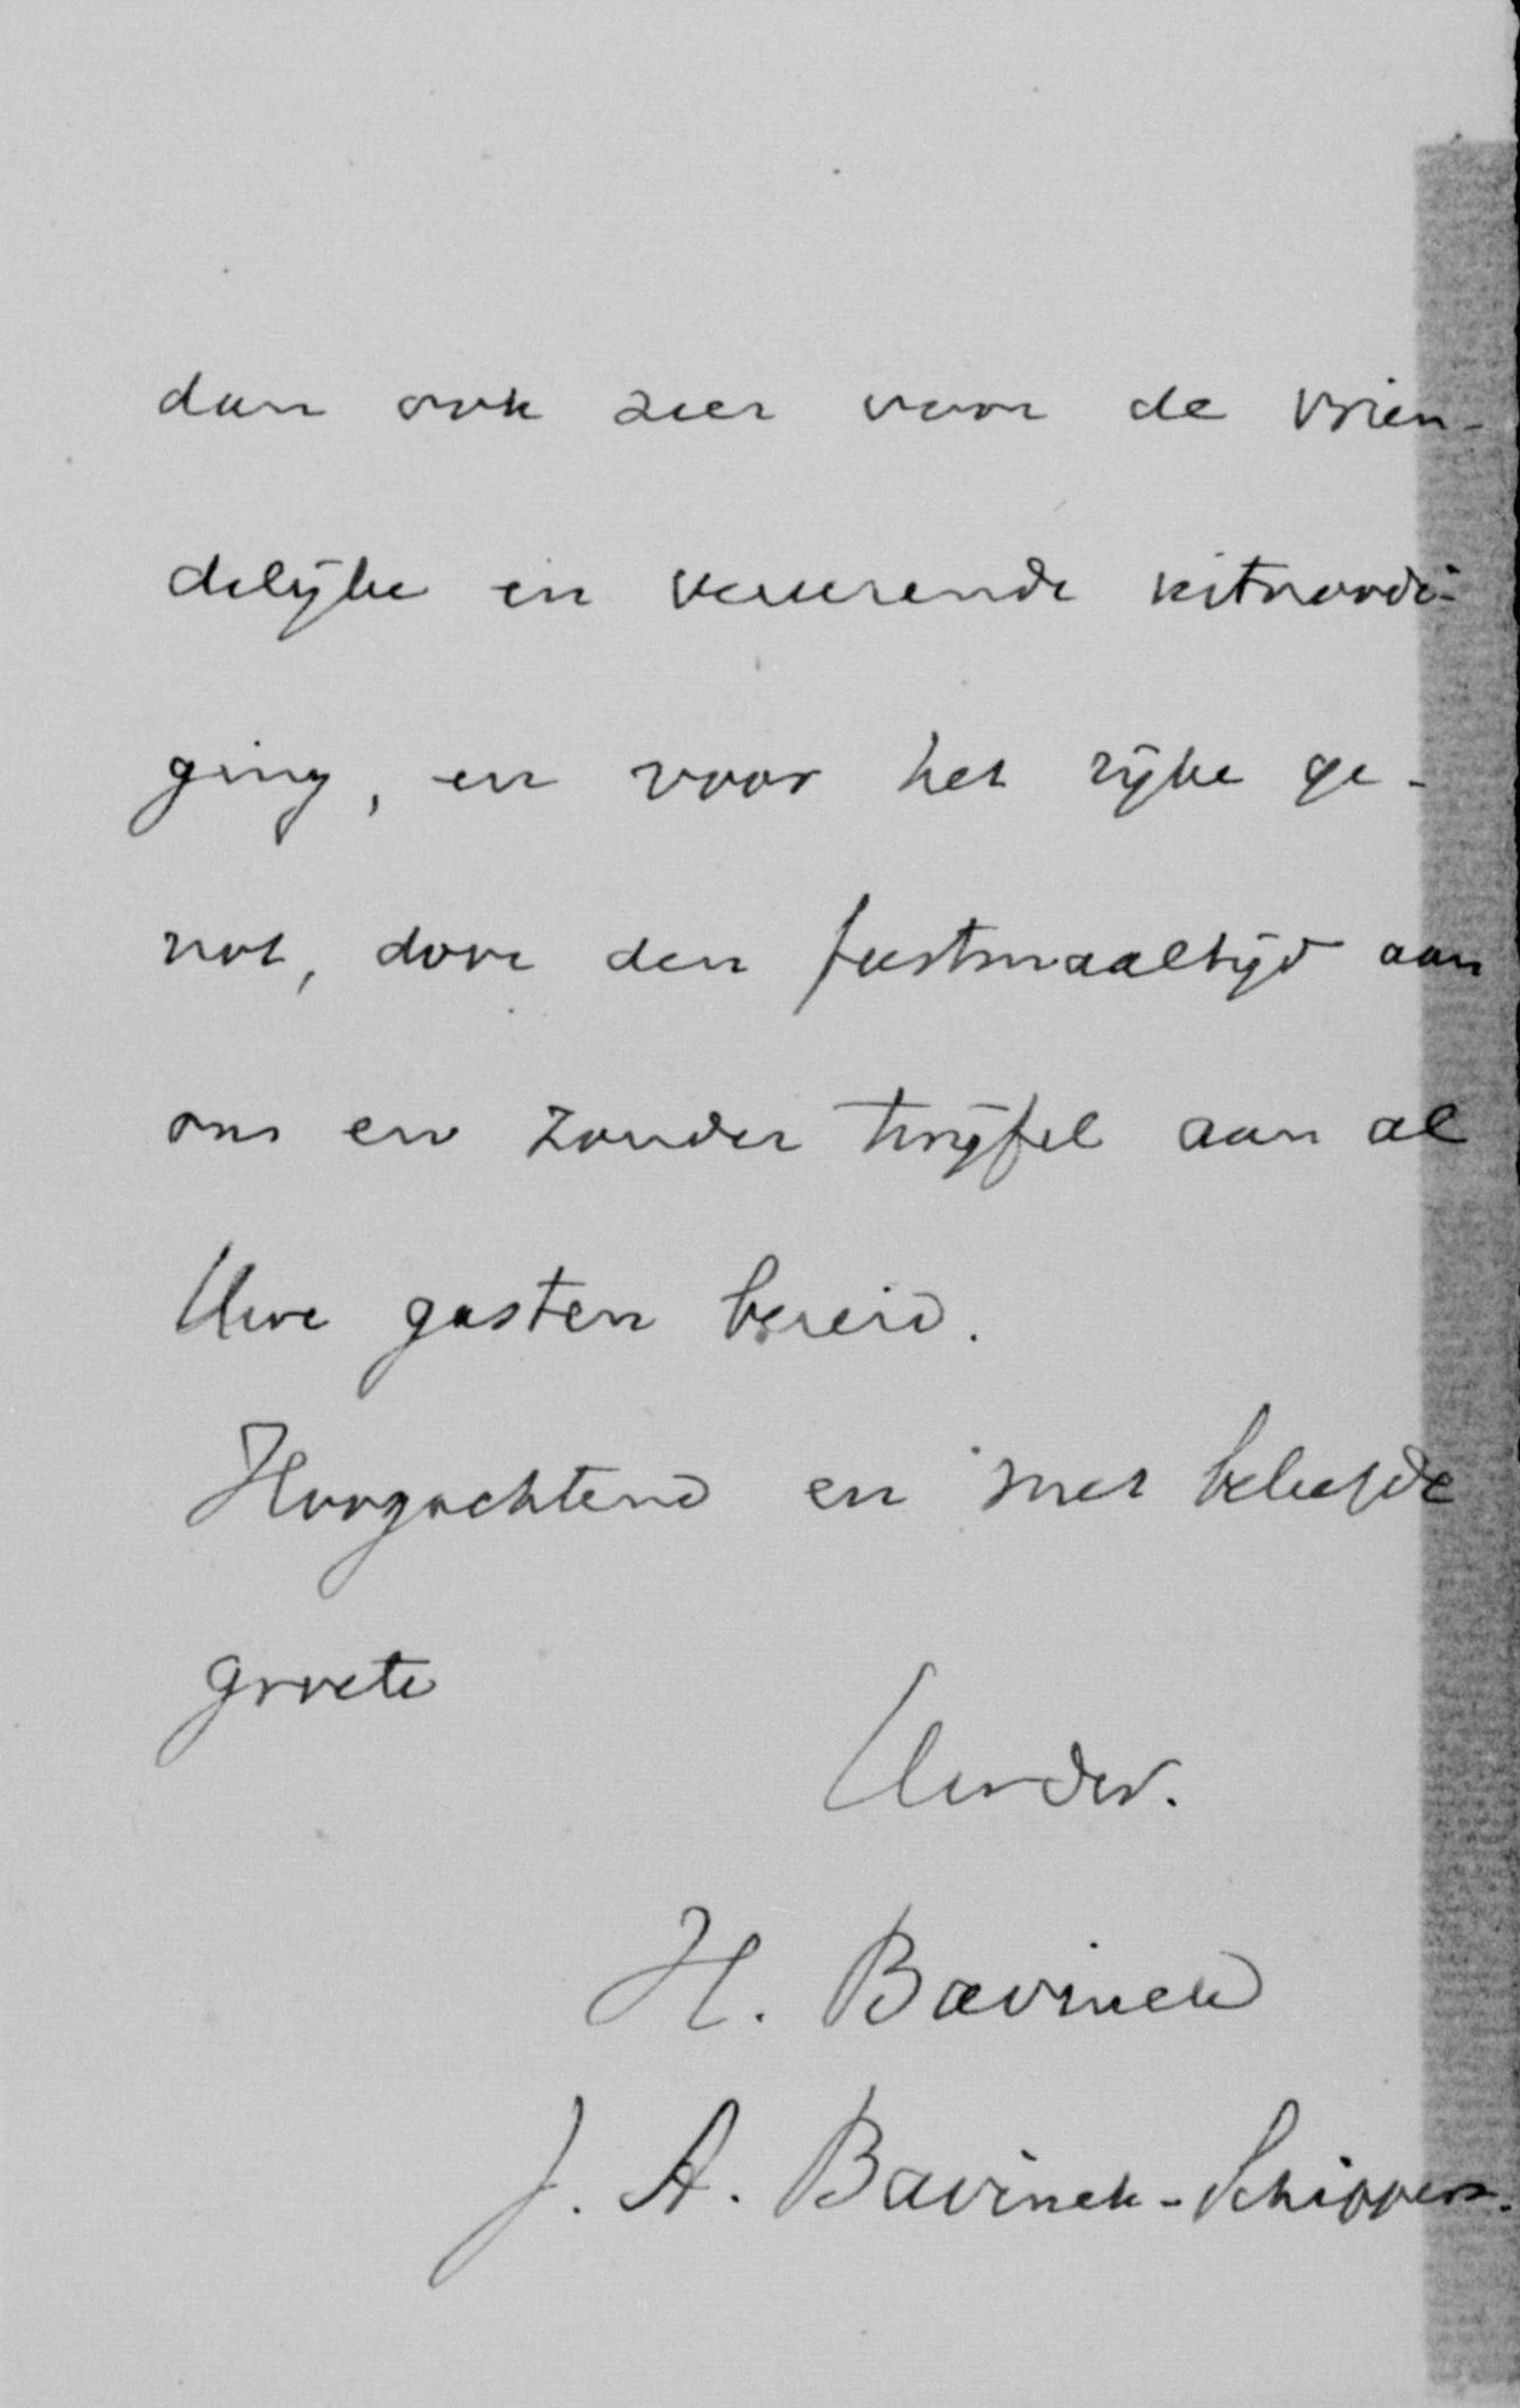 dan ook zeer voor de vrien-
delijke en vereerende uitnoodi-
ging, en voor het rijke ge-
not, door den feestmaaltijd aan
ons en zonder twijfel aan al
Uwe gasten bereid.
Hoogachtend en met beleefde
groete
Uwdw.
H. Bavinck
J. A. Bavinck-Schippers.